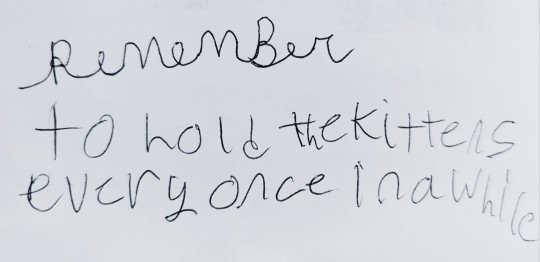 Remember
to hold the kittens
every once in a while